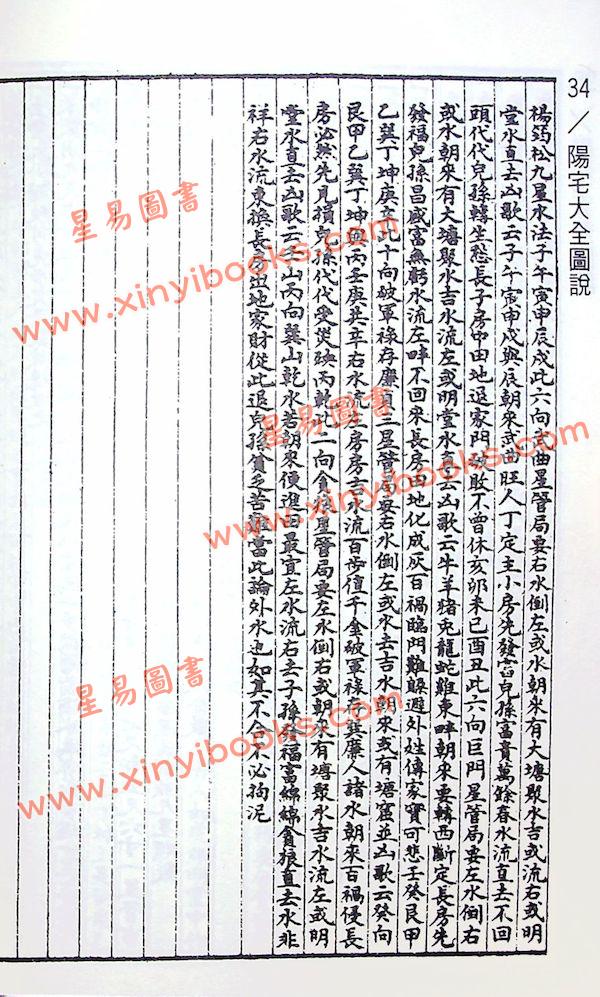 34／陽宅大全圖說
楊筠松九星水法子午寅申辰戌此六向武曲星管局要右水倒左或水朝來有大塘聚水吉或流右或明
堂水直去凶歌云子午寅申戌與辰朝來武曲旺人丁定主小房先發富兒孫富貴萬餘春水流直去不回
頭代代兒孫轉生愁長子房中田地退家門破敗不曾休亥卯未巳酉丑此六向巨門星管局要左水倒右
或水朝來有大塘聚水吉水流左或明堂水直去凶歌云牛羊猪兎龍蛇雞東畔朝來要轉西斷定長房先
發福兒孫昌盛富無虧水流左畔不回來長房田地化成灰百禍臨門難躲避外姓傳家實可悲壬癸艮甲
乙巽丁坤庚辛此十向破軍祿存廉貞三星管局要右水倒左或水去吉水朝來或有塘窟並凶歌云癸向
艮甲乙巽丁坤與丙壬庚共辛右水流左房房吉水流百步值千金破軍祿存與廉人諸水朝來百禍侵長
房必然先見損兒孫代代受災殃丙乾此二向貪狼星管局要左水倒右或朝來有塘聚水吉水流左或明
堂水直去凶歌云壬山丙向巽山乾水若朝來便進田最宜左水流右去子孫發福富綿綿貪狼直去水非
祥右水流東損長房田地家財從此退兒孫貧乏苦難當此論外水也如真不合不必拘泥
星易圖書
www.xinyibooks.com
星易圖書
www.xinyibooks.com
星易圖書
www.xinyibooks.com